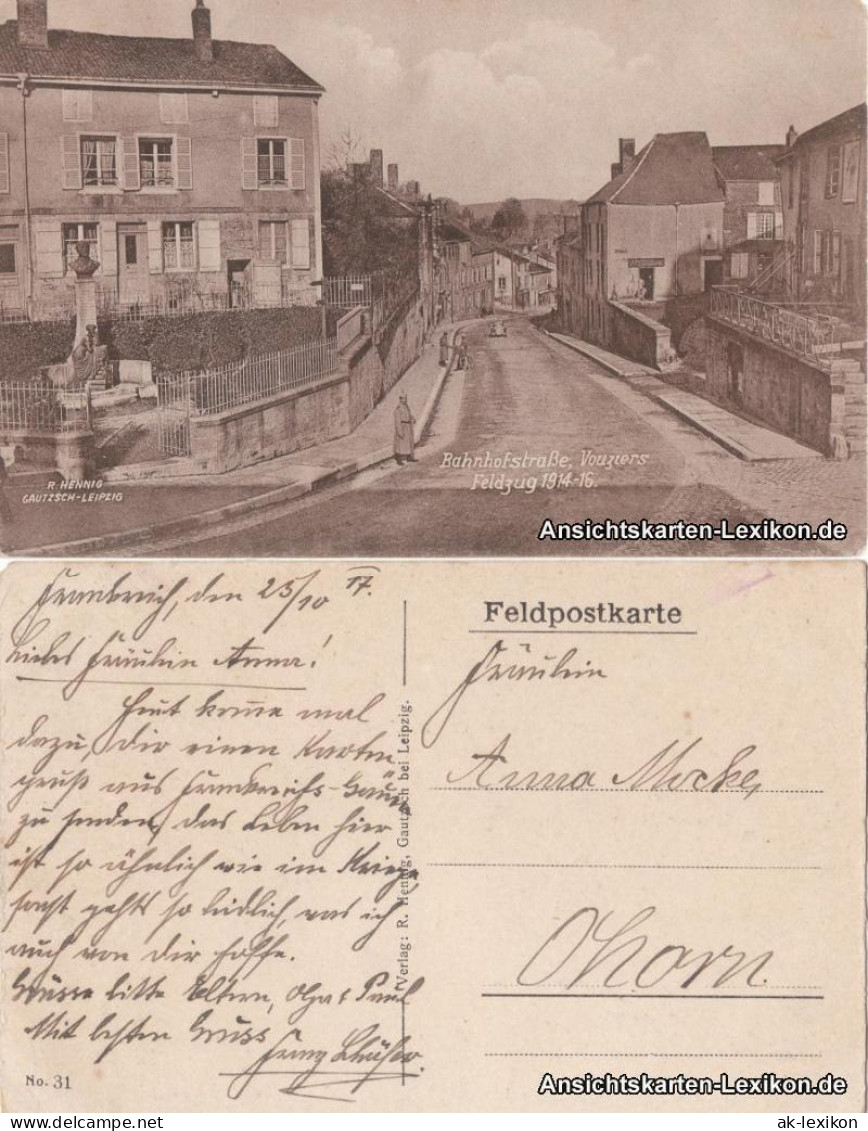 R. HENNIG
GAUTZSCH-LEIPZIG
Bahnhofstraße, Vouziers
Feldzug 1914-16.
Ansichtskarten-Lexikon.de
Frankreich, den 25/10 17.
Liebes Fräulein Anna!
Heut komme mal
dazu, Dir einen Karten
gruß aus Frankreichs-Gauen
zu senden, das Leben hier
ist so ähnlich wie im Kriege,
sonst gehts so leidlich, was ich
auch von Dir hoffe.
Grüsse bitte Eltern, Olga & Paul
Mit besten Gruss
No. 31
Verlag: R. Hennig, Gautzsch bei Leipzig.
Feldpostkarte
Fräulein
Anna Mocke,
Ohorn
Ansichtskarten-Lexikon.de
ak-lexikon